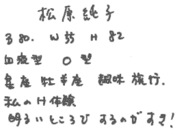 松原純子
B80. W55 H82
血液型 O型
星座 牡羊座 趣味 旅行.
私のH体験
明るいところび するのがすき!